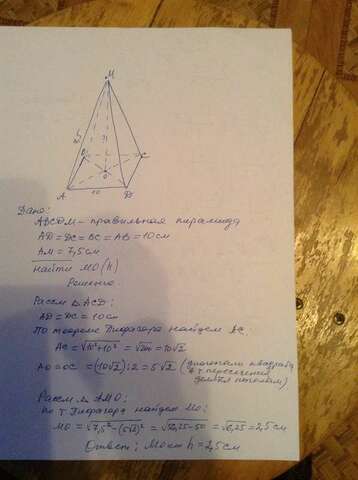 M
B
C
O
A
10
D
Дано:
ABCDM - правильная пирамида
AD = DC = BC = AB = 10 см
AM = 7,5 см
найти MO (h)
Решение
Рассм. △ACD:
AD = DC = 10 см
По теореме Пифагора найдем AC.
AC = √10²+10² = √200 = 10√2
AO = OC = (10√2):2 = 5√2 (диагонали квадрата
в т. пересечения
делятся пополам)
Рассм △ AMO:
По т. Пифагора найдем MO:
MO = √7,5²-(5√2)² = √56,25-50 = √6,25 = 2,5 см
Ответ: h = 2,5 см